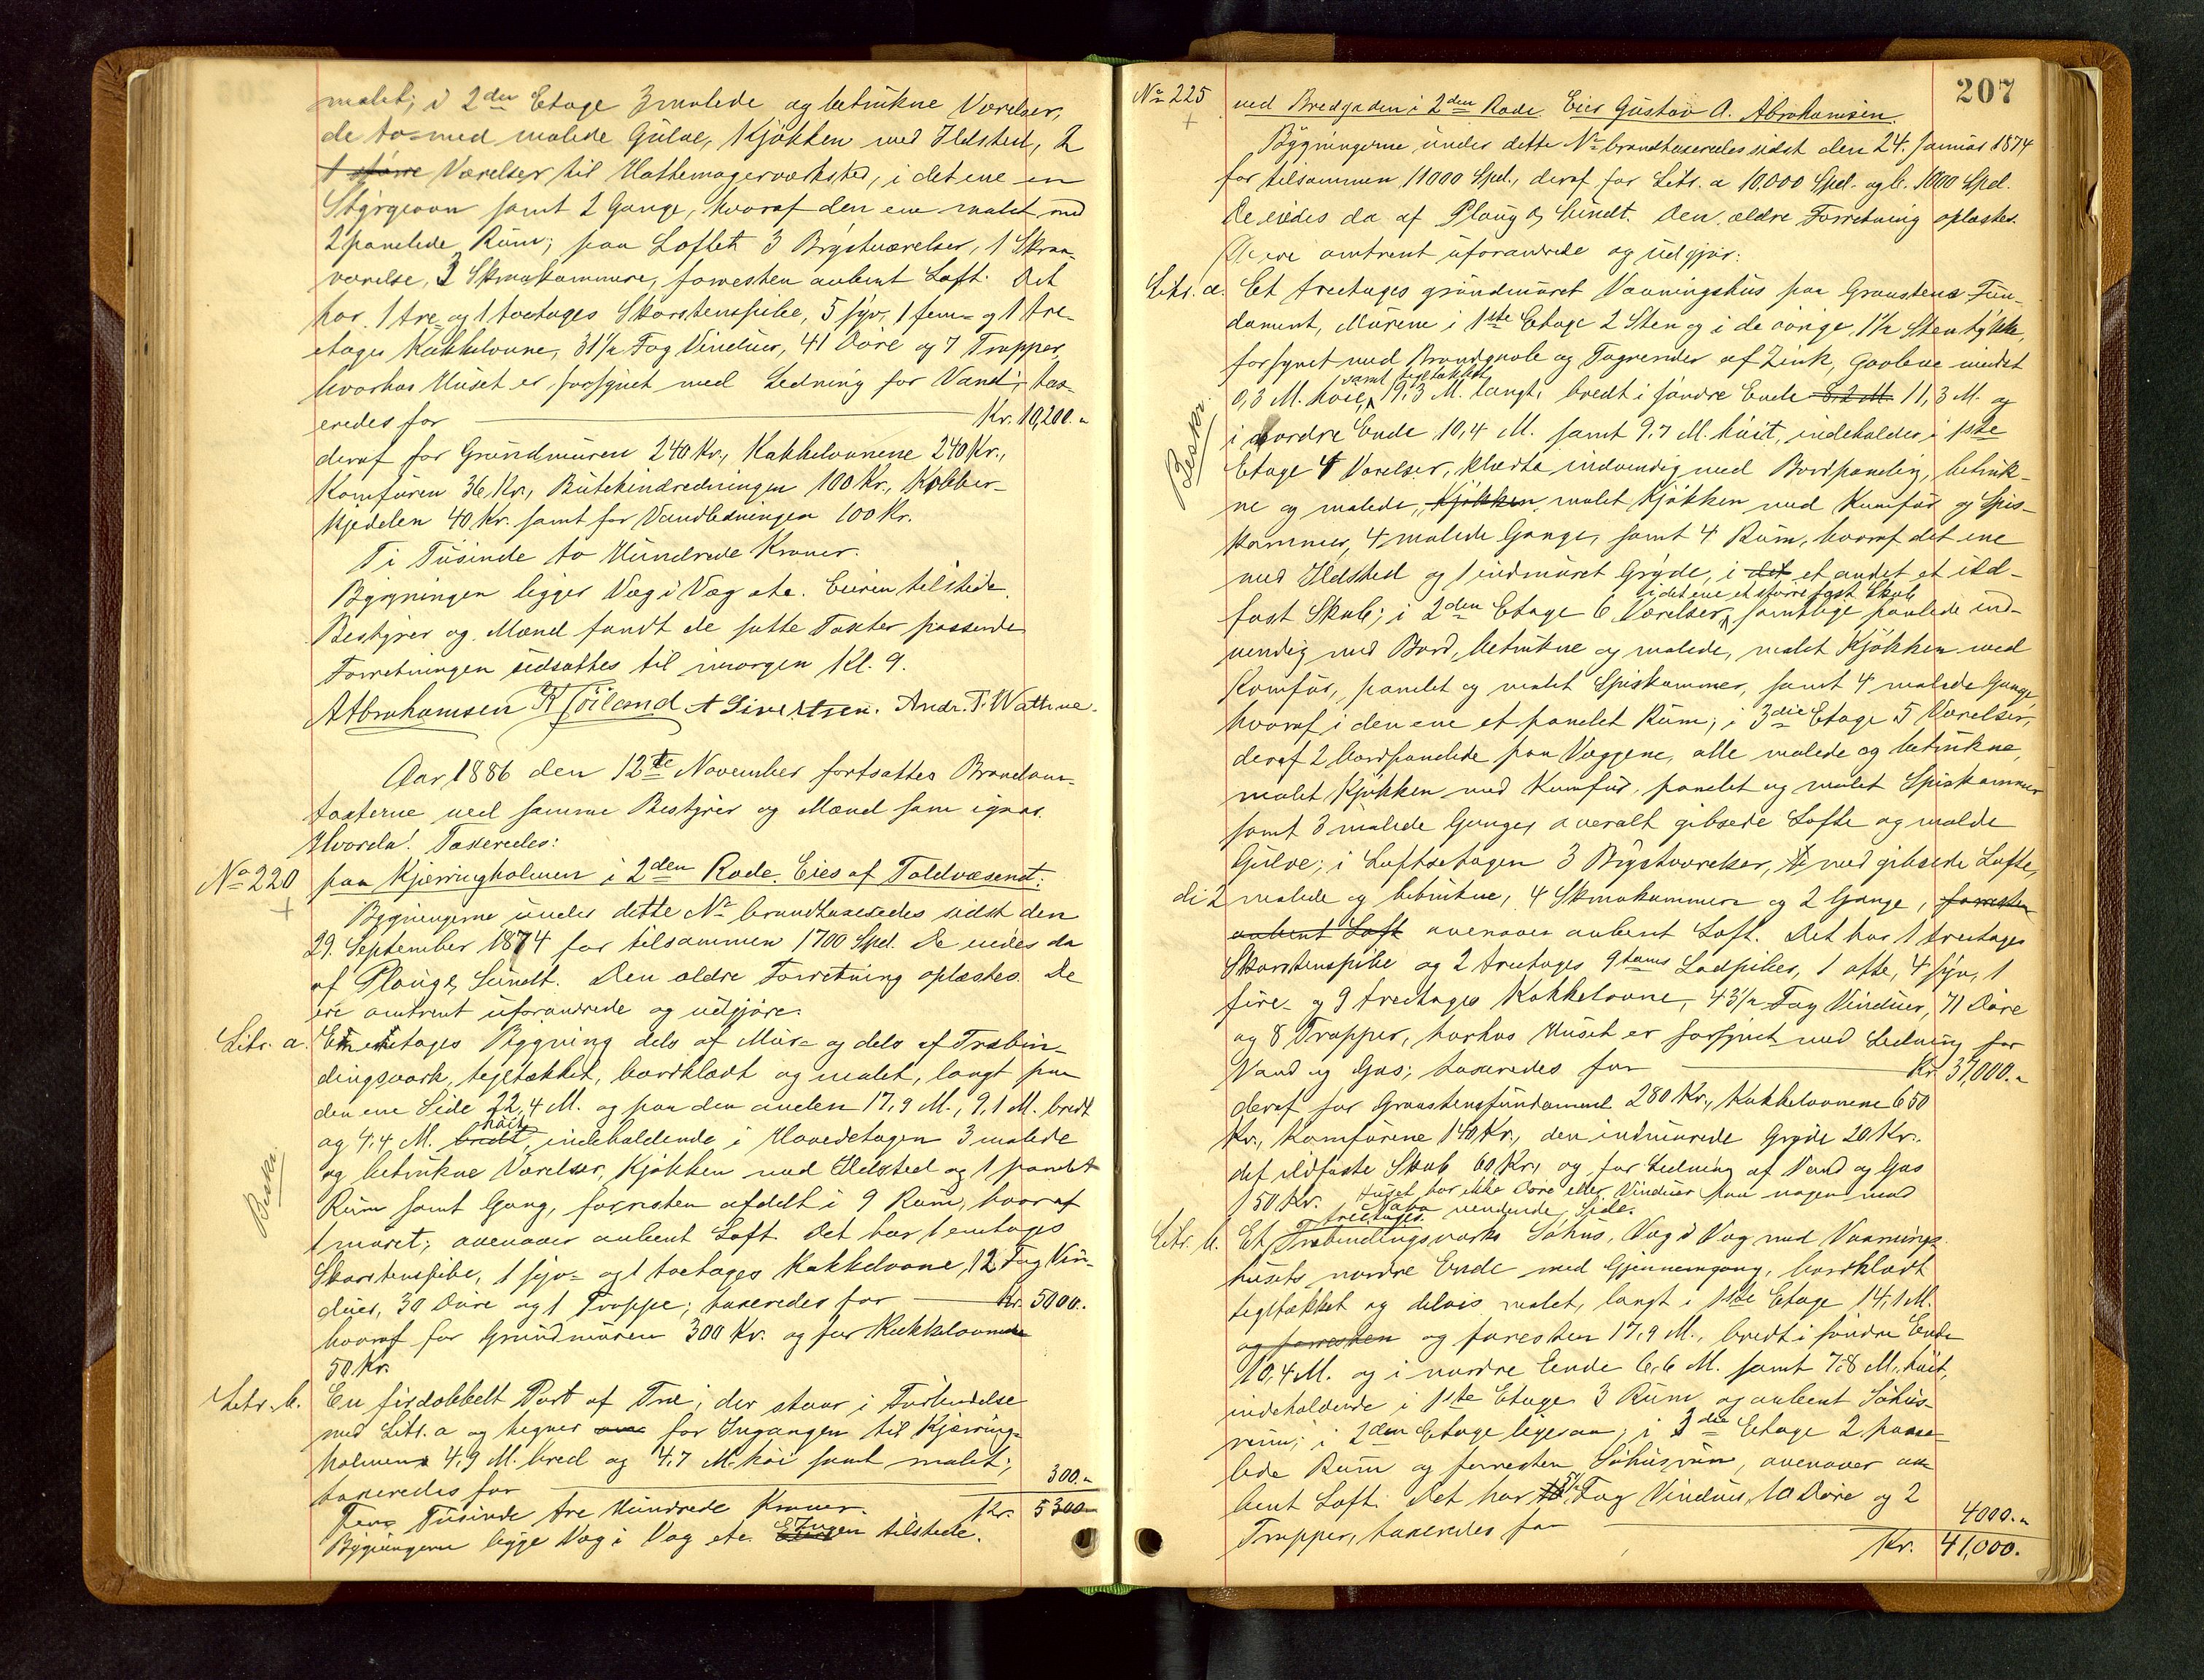 malet; i 2den Etage 3 malede og betrukne Værelser,
de to med malede Gulve, Kjøkken med Ildsted, 2
1 større Værelser til Hattemagerværksted, i det ene en
Strygeovn samt 2 Gange, hvoraf den ene malet med
2 panelede Rum; paa Loftet 3 Brystværelser, 1 Skraa-
værelse, 3 Skraakammere, forresten aabent Loft. Det
har 1 tre- og 1 toetages Skorstenspibe, 5 syv, 1 fem- og 1 tre-
etages Kakkelovne, 31½ Fag Vinduer, 41 Døre og 7 Trapper,
hvorhos Huset er forsynet med Ledning for Vand; tax-
eredes for Kr. 10,200.-
deraf for Grundmuren 240 Kr., Kakkelovnene 240 Kr.,
Komfuren 36 Kr., Butikindredningen 100 Kr., Kobber-
kjedelen 40 Kr. samt for Vandledningen 100 Kr.
Ti Tusinde to Hundrede Kroner.
Bygningen ligger Væg i Væg etc. Eieren tilstede.
Bestyrer og Mænd fandt de satte Taxter passende
Forretningen udsattes til imorgen Kl. 9.
A Abrahamsen K Höiland A Sivertsen. Andr. T. Wathne.
Aar 1886 den 12te November fortsattes Brandom-
taxterne ved samme Bestyrer og Mænd som igaar.
Hvorda! Taxeredes:
No 220 paa Kjærringholmen i 2den Rode. Eies af Toldvæsenet.
Bygningerne under dette No brandtaxeredes sidst den
29. September 1874 for tilsammen 1700 Spd. De eiedes da
af Ploug & Sundt. Den ældre Forretning oplæstes. De
ere omtrent uforandrede og udgjøre:
Litr. a. En etages Bygning dels af Mur- og dels af Træbin-
dingsværk, tegltækket, bordklædt og malet, langt paa
den ene Side 22,4 M. og paa den anden 17,9 M., 9,1 M. bredt
høit
og 4.4 M. bredt, indeholdende i Hovedetagen 3 malede
Beskr.
og betrukne Værelser, Kjøkken med Ildsted og 1 panelet
Rum samt Gang, forresten afdelt i 9 Rum, hvoraf
1 muret; ovenover aabent Loft. Det har 1 enetages
Skorstenspibe, 1 syv- og 1 toetages Kakkelovne, 12 Fag Vin-
duer, 30 Døre og 1 Trappe; taxeredes for Kr. 5000.
hvoraf for Grundmuren 300 Kr. og for Kakkelovnene
50 Kr.
Litr. b. En firdobbelt Port af Træ, der staar i Forbindelse
med Litr. a og tegner for Ingangen til Kjærring-
holmen 4,9 M. bred og 4.7 M. høi samt malet;
taxeredes for 300.-
Fem Tusinde tre Hundrede Kroner. Kr. 5300
Bygningerne ligge Væg i Væg etc. Ingen tilstede.
207
No 225 ved Bredgaden i 2den Rode. Eies Gustav A. Abrahamsen.
Bygningerne under dette No brandtaxeredes sidst den 24. Januar 1874
for tilsammen 11000 Spd., deraf for Litr. a 10,000 Spd. og b. 1000 Spd.
De eiedes da af Ploug & Sundt. Den ældre Forretning oplæstes.
De ere omtrent uforandrede og udgjør:
Litr. a. Et treetages grundmuret Vaaningshus paa Graastens Fun-
dament, Murene i 1ste Etage 2 Sten og i de øvrige 1½ Sten tykke,
forsynet med Brandgavle og Tagrender af Zink, Gavlene mindst
samt tegltækket
0,3 M. høie, 19,3 M. langt, bredt i søndre Ende 8,2 M. 11,3 M. og
Beskr.
i nordre Ende 10,4 M. samt 9,7 M. høit, indeholder i 1ste
Etage 4 Værelser, klædte indvendig med Bordpaneling, betruk-
ne og malede, Kjøkken, malet Kjøkken med Komfur og Spis-
kammer, 4 malede Gange, samt 4 Rum, hvoraf det ene
med Ildsted og 1 indmuret Gryde, i det et andet et ild-
i det ene et større fast Skab
fast Skab; i 2den Etage 6 Værelser, samtlige panlede ind-
vendig med Bord, betrukne og malede, malet Kjøkken med
Komfur, panelet og malet Spiskammer, samt 4 malede Gange,
hvoraf i den ene et panelet Rum; i 3die Etage 5 Værelser,
deraf 2 bordpanelede paa Væggene, alle malede og betrukne,
malet Kjøkken med Komfur, panelet og malet Spiskammer
samt 3 malede Gange, overalt gibsede Lofte og malde
Gulve; i Loftsetagen 3 Brystværelser, med gibsede Lofte,
de 2 malede og betrukne, 4 Skraakammere og 2 Gange, forresten
aabent Loft ovenover aabent Loft. Det har 1 treetages
Skorstenspibe og 2 treetages 9 toms Lodpiber, 1 otte, 4 syv, 1
fire- og 9 treetages Kakkelovne, 43½ Fag Vinduer, 71 Døre
og 8 Trapper, hvorhos Huset er forsynet med Ledning for
Vand og Gas; taxeredes for Kr. 37,000.-
deraf for Graastensfundament 280 Kr., Kakkelovnene 650
Kr., Komfurene 140 Kr., den indmurede Gryde 20 Kr.
det ildfaste Skab 60 Kr., og for Ledning af Vand og Gas
150 Kr. Huset har ikke Døre eller Vinduer paa nogen mod
Nabo vendende Side.
treetages
Litr. b. Et Træbindingsværks Søhus, Væg i Væg med Vaanings-
husets nordre Ende med Gjennemgang, bordklædt
tegltækket og delvis malet, langt i 1ste Etage 14,1 M.
og forresten og foresten 17.9 M., bredt i søndre Ende
10,4 M. og i nordre Ende 6,6 M. samt 7.8 M. høit,
indeholdende i 1ste Etage 3 Rum og aabent Søhus-
rum; i 2den Etage ligesaa; i 3die Etage 2 pane-
lede Rum og forresten Søhusrum, ovenover aa-
bent Loft. Det har Fag Vinduer, 10 Døre og 2
Trapper, taxeredes for 4000.-
Kr. 41,000.